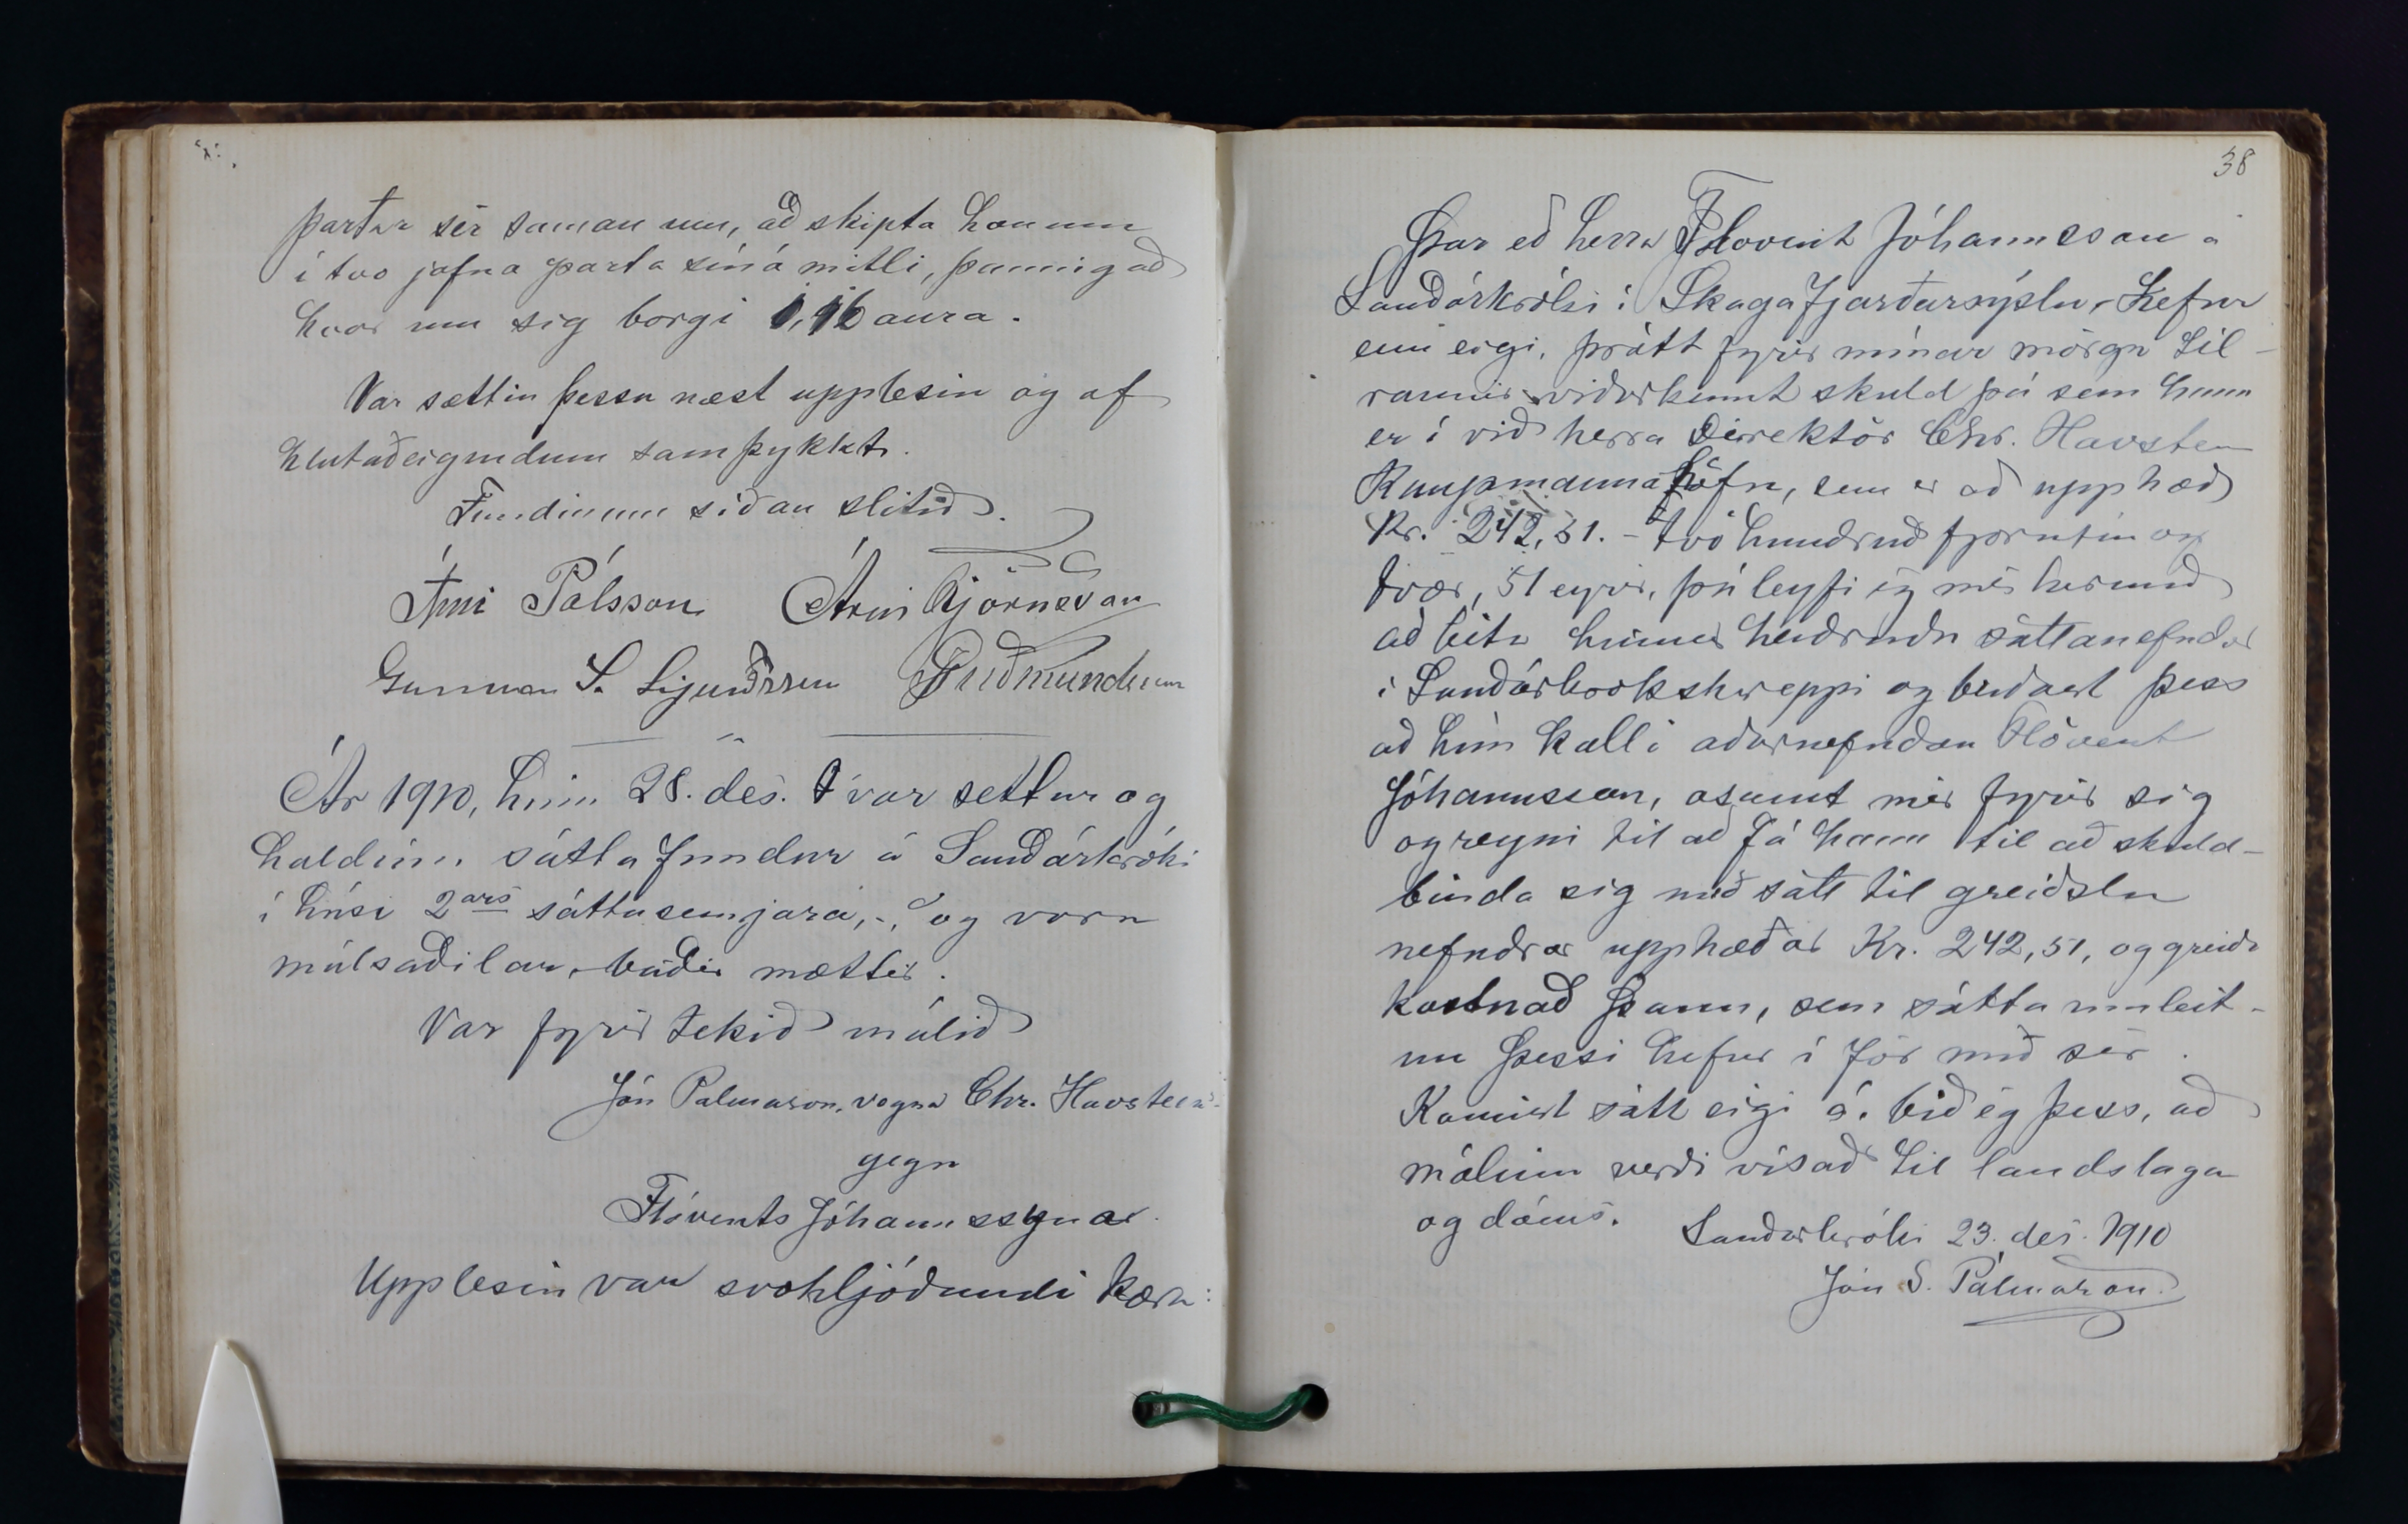 partar sér saman um, að skipta honum
í tvo jafna parta sín á milli, þannig að
hvor um sig borgi aura.
Var sættin þessu næst upplesin og af
hlutaðeigendum samþykkt.
Fundinum síðan slitið.
Árni Pálsson Árni Björnsson
Gunnar S. Guðmundsson
Ár 1910, hinn 28. des. var settur og
haldinn sáttafundur á Sauðárkróki
í húsi 2ars sáttasemjara, -, og voru
málsaðilar, báðir mættir.
Var fyrir tekið málið
Jón Pálmason, vegna Chr. Havsteen
gegn
Flóvents Jóhannssynar.
Upplesin var svohljóðandi kæra:
38
Þar eð herra Flovent Jóhannsson á
Sauðárkróki í Skagafjarðarsýslu, hefur
enn eigi, þrátt fyrir mínar mörgu til-
raunir viðurkennt skuld þá sem hann
er í við herra Direktör Chr. Havsteen
Kaupmannahöfn, sem er að upphæð
Kr. 242,51. - tvö hundruð fjörutíu og
tvær, 51 eyrir, þá leyfi ég mér hérmeð
að leita hinnar heiðruðu sáttanefndar
í Sauðárkrókshreppi og beiðast þess
að hún kalli áðurnefndan Flóvent
Jóhannsson, ásamt mér fyrir sig
og reyni til að fá hann til að skuld-
binda sig með sátt til greiðslu
nefndrar upphæðar Kr. 242,51, og greiða
kostnað þann, sem sáttaumleit-
un þessi hefur í för með sér.
Komist sátt eigi á, bið ég þess, að
málinu verði vísað til landslaga
og dóms.
Sauðárkróki 23. des. 1910
Jón S. Pálmason.